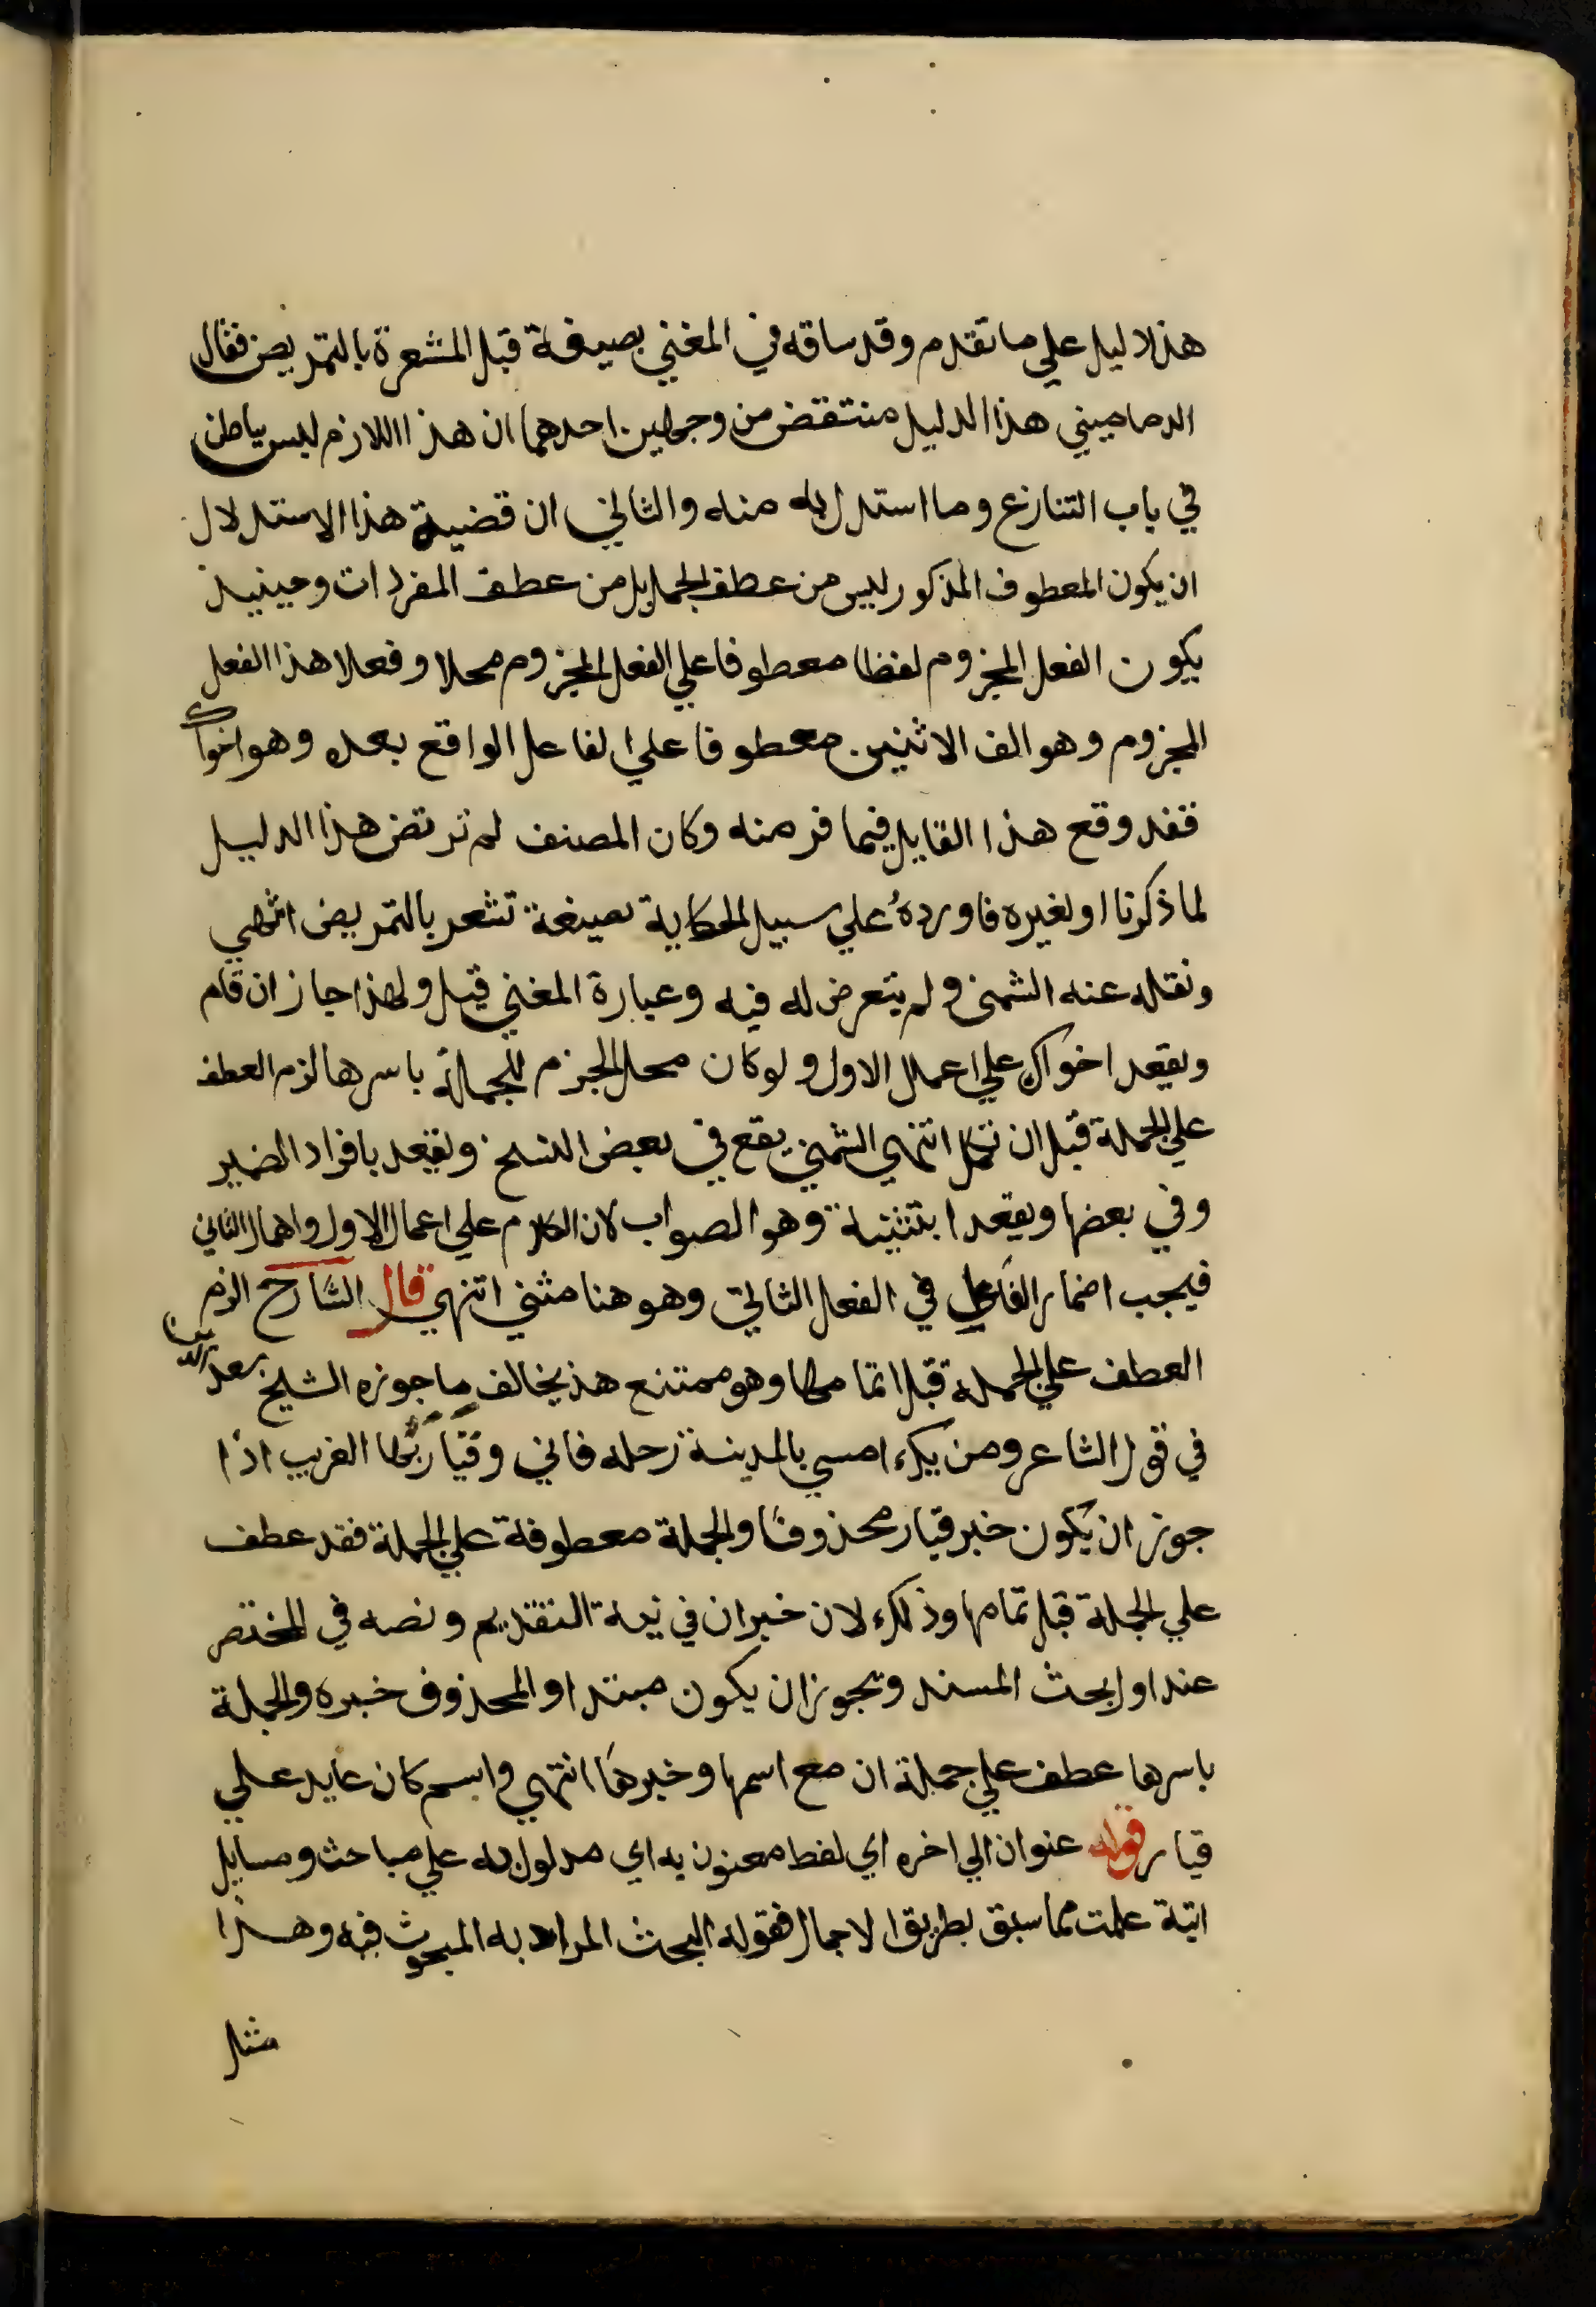 هذا دليل علي ما تقدم وقد ساقه في المغني بصيغة قيل المشعرة بالتمريض فقال
الدماميني هذا الدليل منتقض من وجهين احدهما ان هذا اللازم ليس بباطل
في باب التنازع وما استدل به منه والثاني ان قضية هذا الاستدلال
ان يكون المعطوف المذكور ليس من عطف الجمل بل من عطف المفردات وحينيذ
يكون الفعل المجزوم لفظا معطوفا علي الفعل المجزوم محلا وفعلا هذا الفعل
المجزوم وهو الف الاثنين معطوفا علي الفاعل الواقع بعده وهو اخواك
فقد وقع هذا القايل فيما فر منه وكان المصنف لم يرتض هذا الدليل
لما ذكرنا او لغيره فاورده علي سبيل الحكاية بصيغة تشعر بالتمريض انتهي
ونقله عنه الشمني ولم يتعرض له فيه وعبارة المغني قيل ولهذا جاز ان قام
ويقعد اخواك علي اعمال الاول ولو كان محل الجزم للجملة باسرها لزم العطف
علي الجملة قبل ان تكمل انتهي الشمني يقع في بعض النسخ ويقعد بافراد الضمير
وفي بعضها ويقعدا بتثنيته وهو الصواب لان الكلام علي اعمال الاول واهمال الثاني
فيجب اضمار الفاعل في الفعل الثاني وهو هنا مثني انتهي قال الشارح الزم
العطف علي الجملة قبل اتمامها وهو ممتنع هذ يخالف ما جوزه الشيخ سعد الدين
في قول الشاعر ومن يك امسي بالمدينة رحله فاني وقيار بها الغريب اذا
جوز ان يكون خبر قيار محذوفا والجملة معطوفة علي الجملة فقد عطف
علي الجملة قبل تمامها وذلك لان خبر ان في نية التقديم ونصه في المختصر
عند اول بحث المسند ويجوز ان يكون مبتدا والمحذوف خبره والجملة
باسرها عطف علي جملة ان مع اسمها وخبرها انتهي واسم كان عايد علي
قيار قوله عنوان الي اخره اي لفظ معنون به اي مدلول به علي مباحث ومسايل
اتية علمت مما سبق بطريق الاجمال فقوله البحث المراد به المبحوث فيه وهذا
مثل